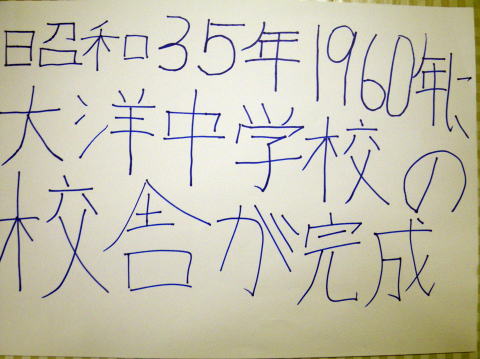 昭和35年1960年に
大洋中学校の
校舎が完成